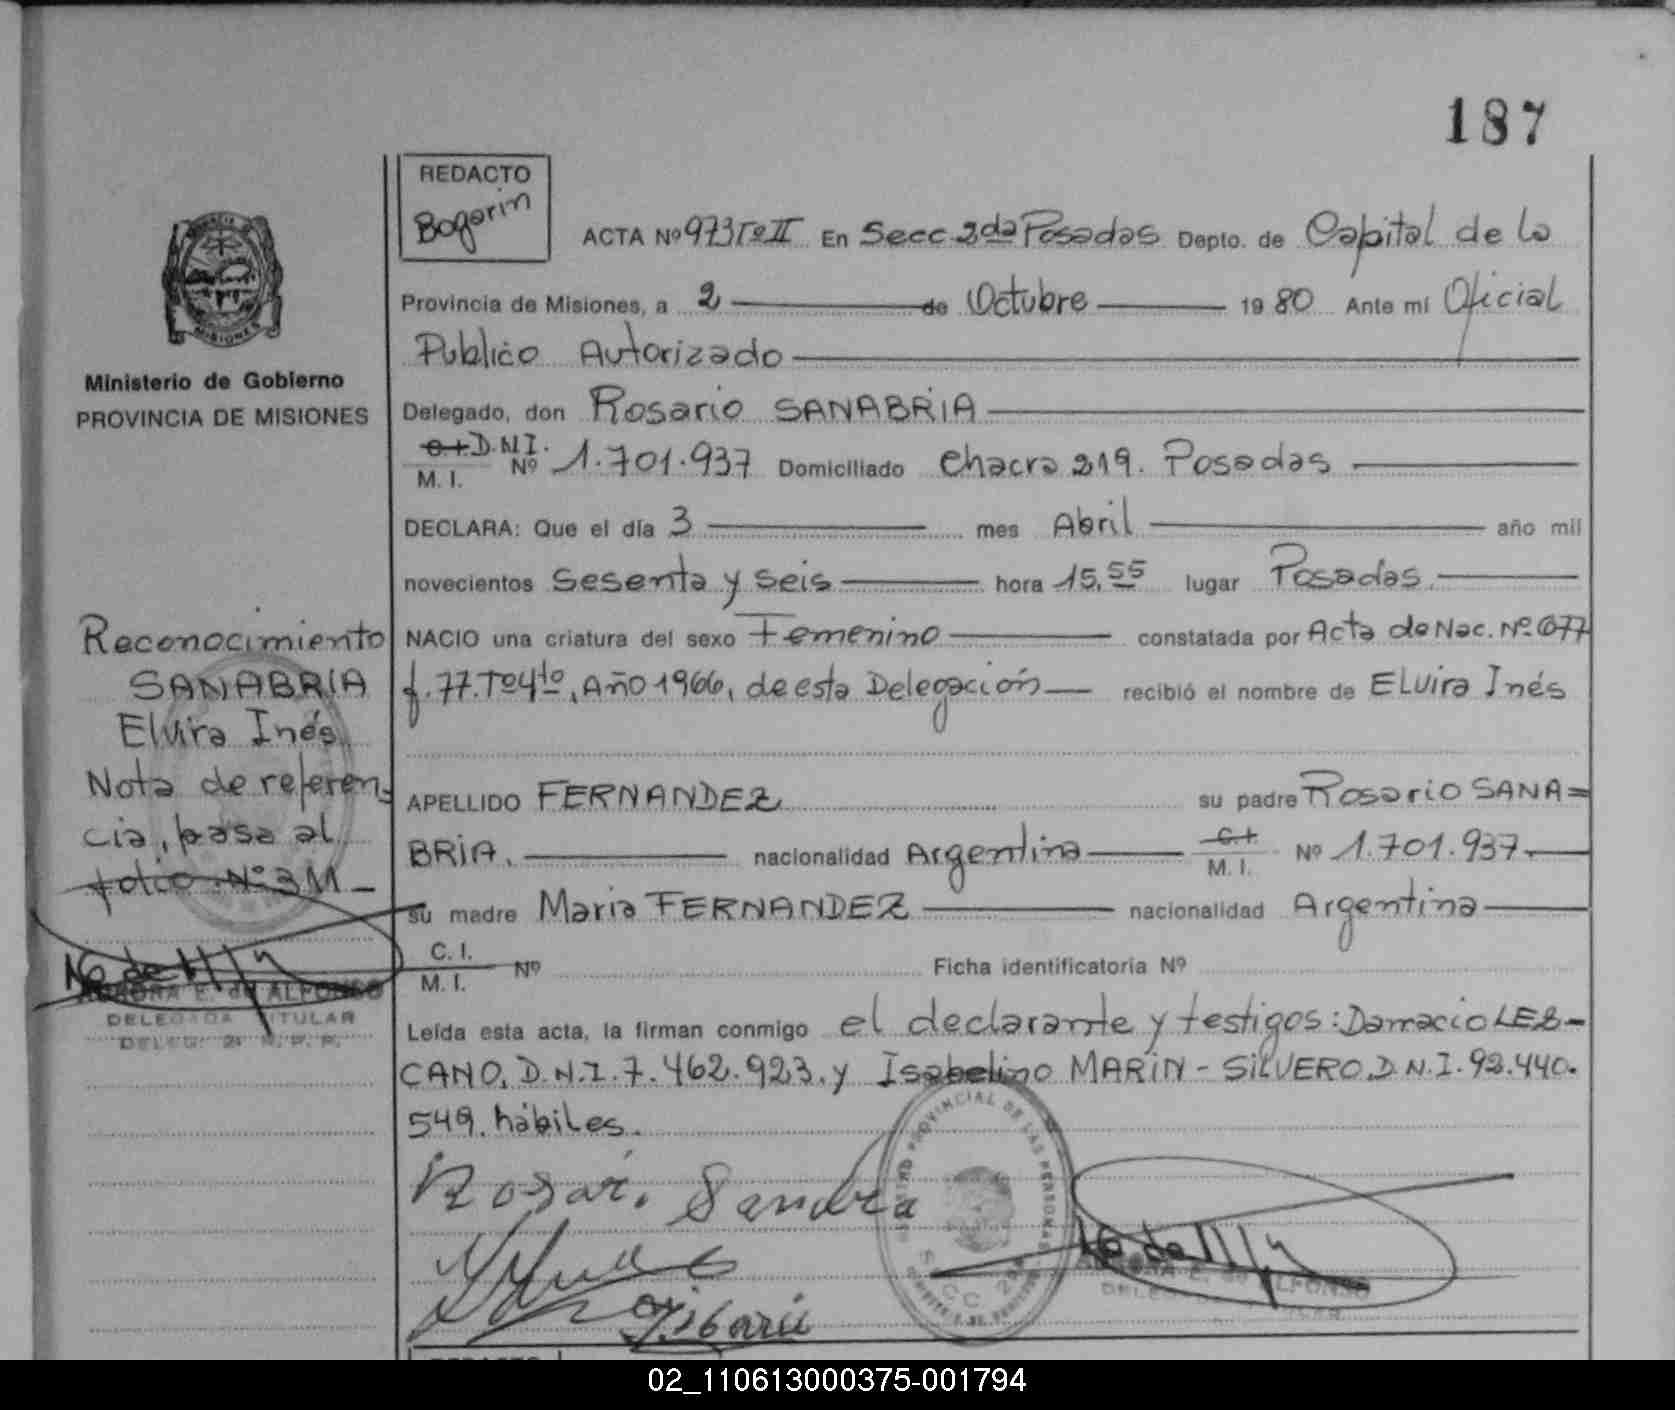 187
REDACTO
Bogarin
ACTA Nº 973 Tº II En Secc 2da Posadas Depto. de Capital de la
Provincia de Misiones, a 2 de Octubre 1980 Ante mi Oficial
Publico Autorizado
Ministerio de Gobierno
PROVINCIA DE MISIONES
Delegado, don Rosario SANABRIA
C.I. D.N.I.
M. I. Nº 1.701.937 Domiciliado Chacra 219. Posadas
DECLARA: Que el día 3 mes Abril año mil
novecientos Sesenta y seis hora 15,55 lugar Posadas.
NACIO una criatura del sexo Femenino constatada por Acta de Nac. Nº 677
f. 77. Tº 4to, Año 1966, de esta Delegación recibió el nombre de Elvira Inés
APELLIDO FERNANDEZ su padre Rosario SANA=
BRIA. nacionalidad Argentina C.I. M. I. Nº 1.701.937.
su madre Maria FERNANDEZ nacionalidad Argentina
C. I.
M. I. Nº Ficha identificatoria Nº
Leída esta acta, la firman conmigo el declarante y testigos: Damacio LEZ-
CANO, D.N.I. 7.462.923. y Isabelino MARIN - SILVERO. D.N.I. 92.440.
549. hábiles.
Reconocimiento
SANABRIA
Elvira Inés
Nota de referen-
cia, pasa al
folio Nº 311
AURORA E. de ALFONSO
DELEGADA TITULAR
DELEG. 2ª R. P. P.
REGISTRO PROVINCIAL DE LAS PERSONAS
SECC 2da
AURORA E. de ALFONSO
DELEGADA TITULAR
REDACTO
02_110613000375-001794